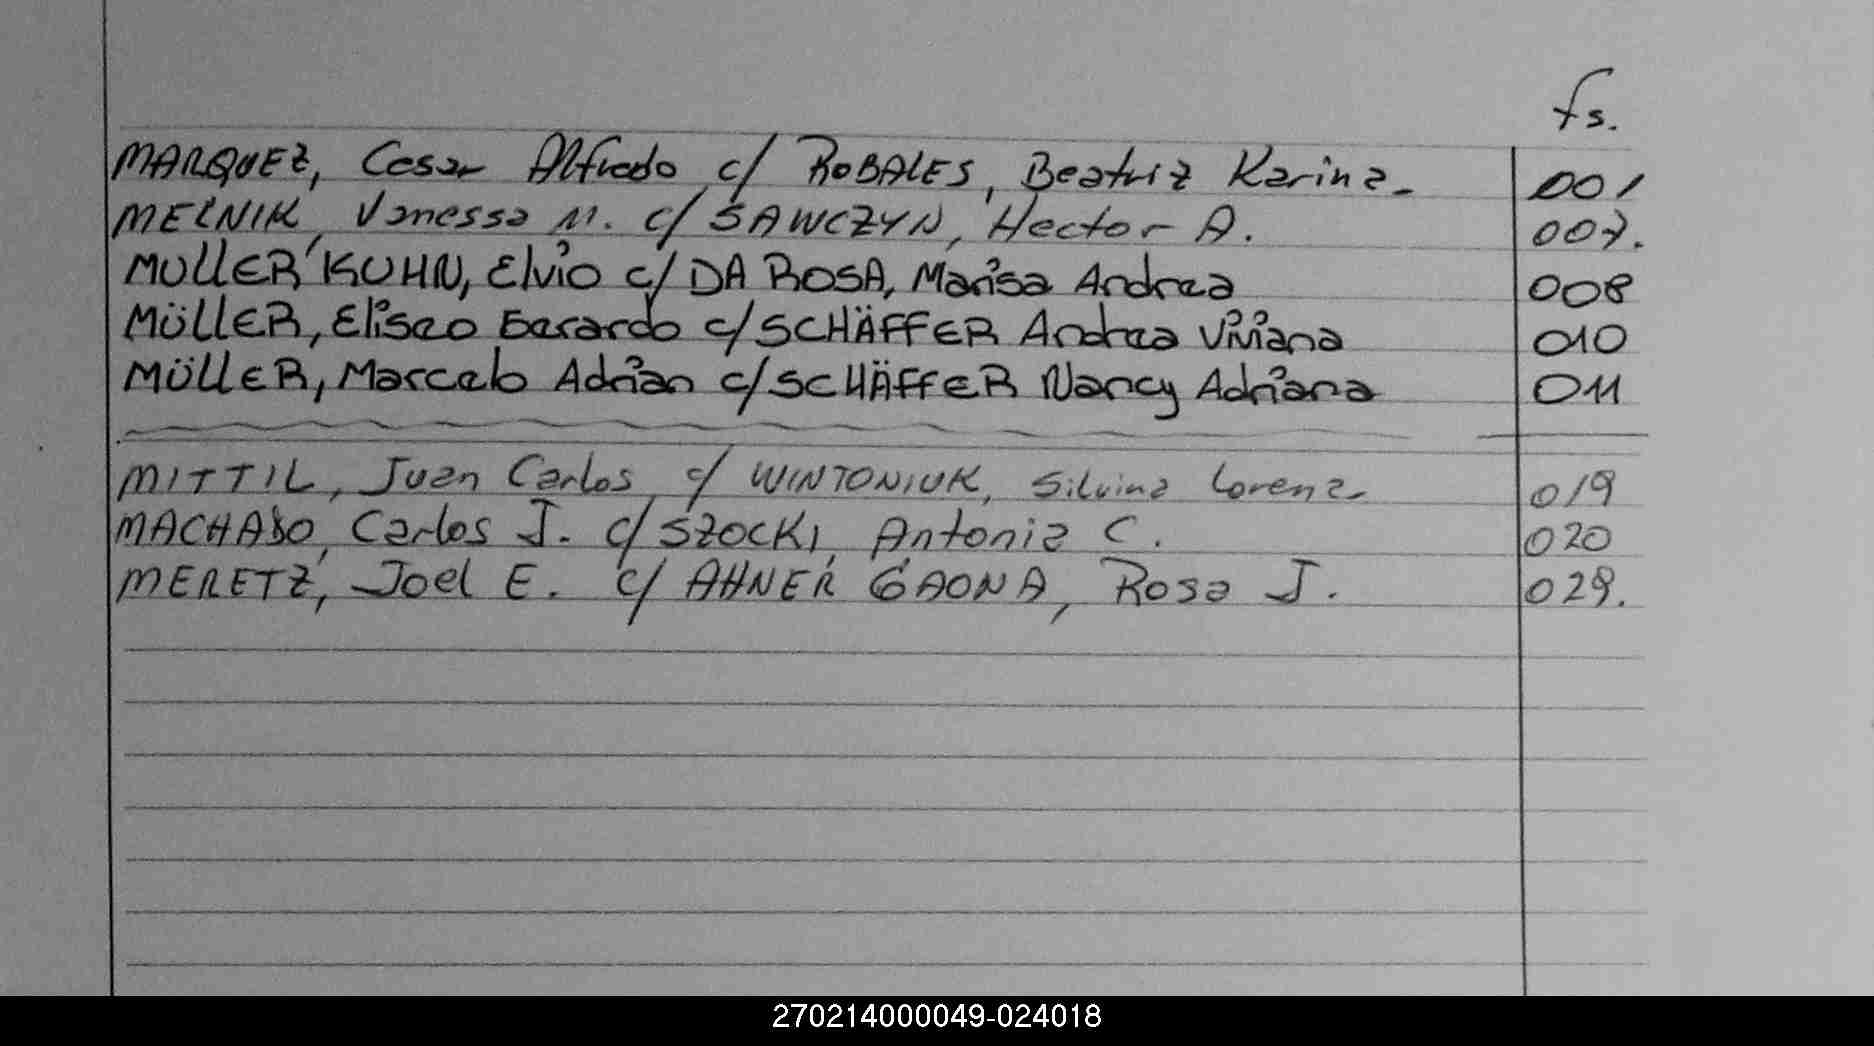 fs.
MARQUEZ, Cesar Alfredo c/ ROBALES, Beatriz Karina. 001
MELNIK, Vanessa M. c/ SAWCZYN, Hector A. 007.
MULLER KUHN, Elvio c/ DA ROSA, Marisa Andrea 008
MÜLLER, Eliseo Gerardo c/ SCHÄFFER Andrea Viviana 010
MÜLLER, Marcelo Adrian c/ SCHÄFFER Nancy Adriana 011
MITTIL, Juan Carlos c/ WINTONIUK, Silvina Lorena. 019
MACHADO, Carlos J. c/ SZOCKI, Antonia C. 020
MERETZ, Joel E. c/ AHNER GAONA, Rosa J. 029.
270214000049-024018